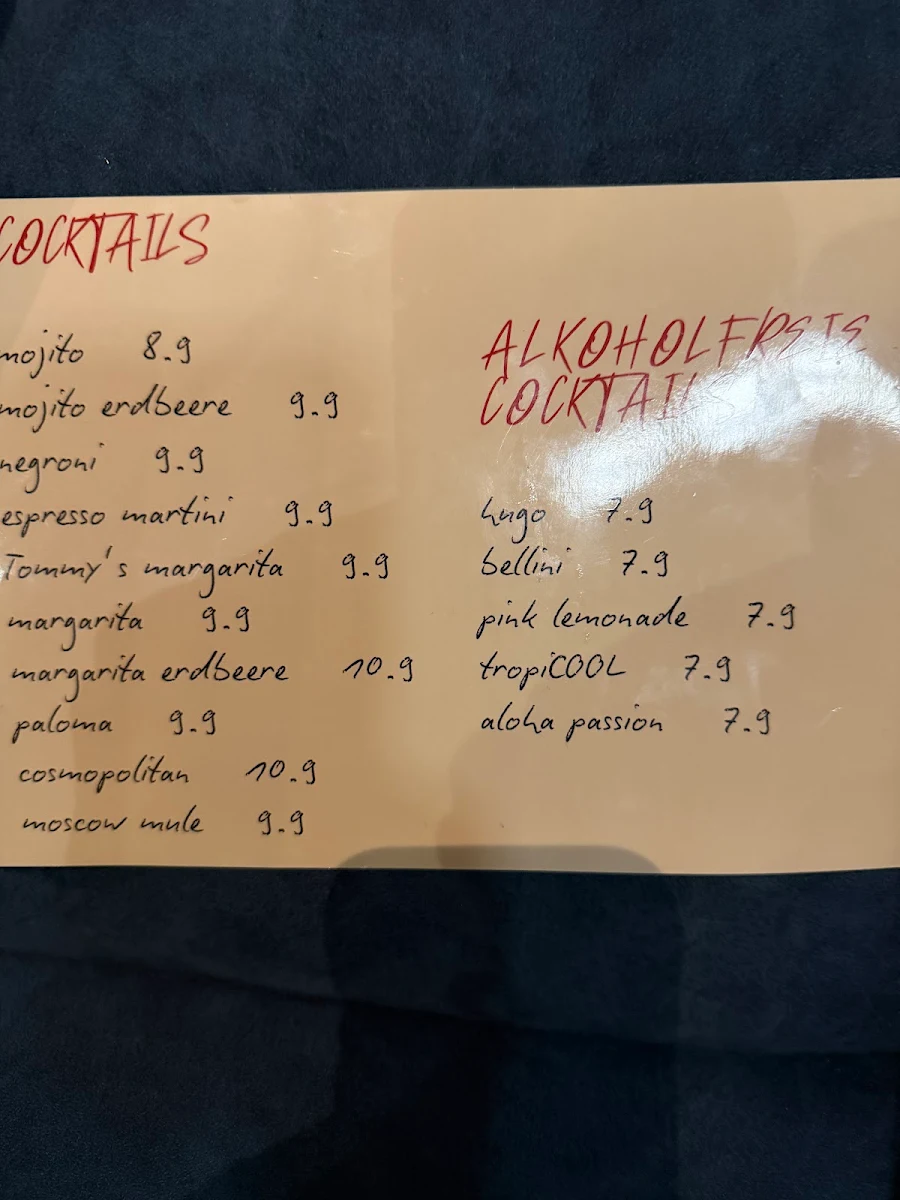 COCKTAILS
mojito 8.9
mojito erdbeere 9.9
negroni 9.9
espresso martini 9.9
Tommy's margarita 9.9
margarita 9.9
margarita erdbeere 10.9
paloma 9.9
cosmopolitan 10.9
moscow mule 9.9
ALKOHOLFREIE
COCKTAILS
hugo 7.9
bellini 7.9
pink lemonade 7.9
tropiCOOL 7.9
aloha passion 7.9